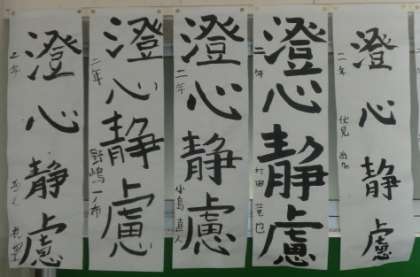 澄心静慮
二年 伏見
澄心静慮
二年
澄心静慮
二年 小島 直人
澄心静慮
二年 野嶋
澄心静慮
二年